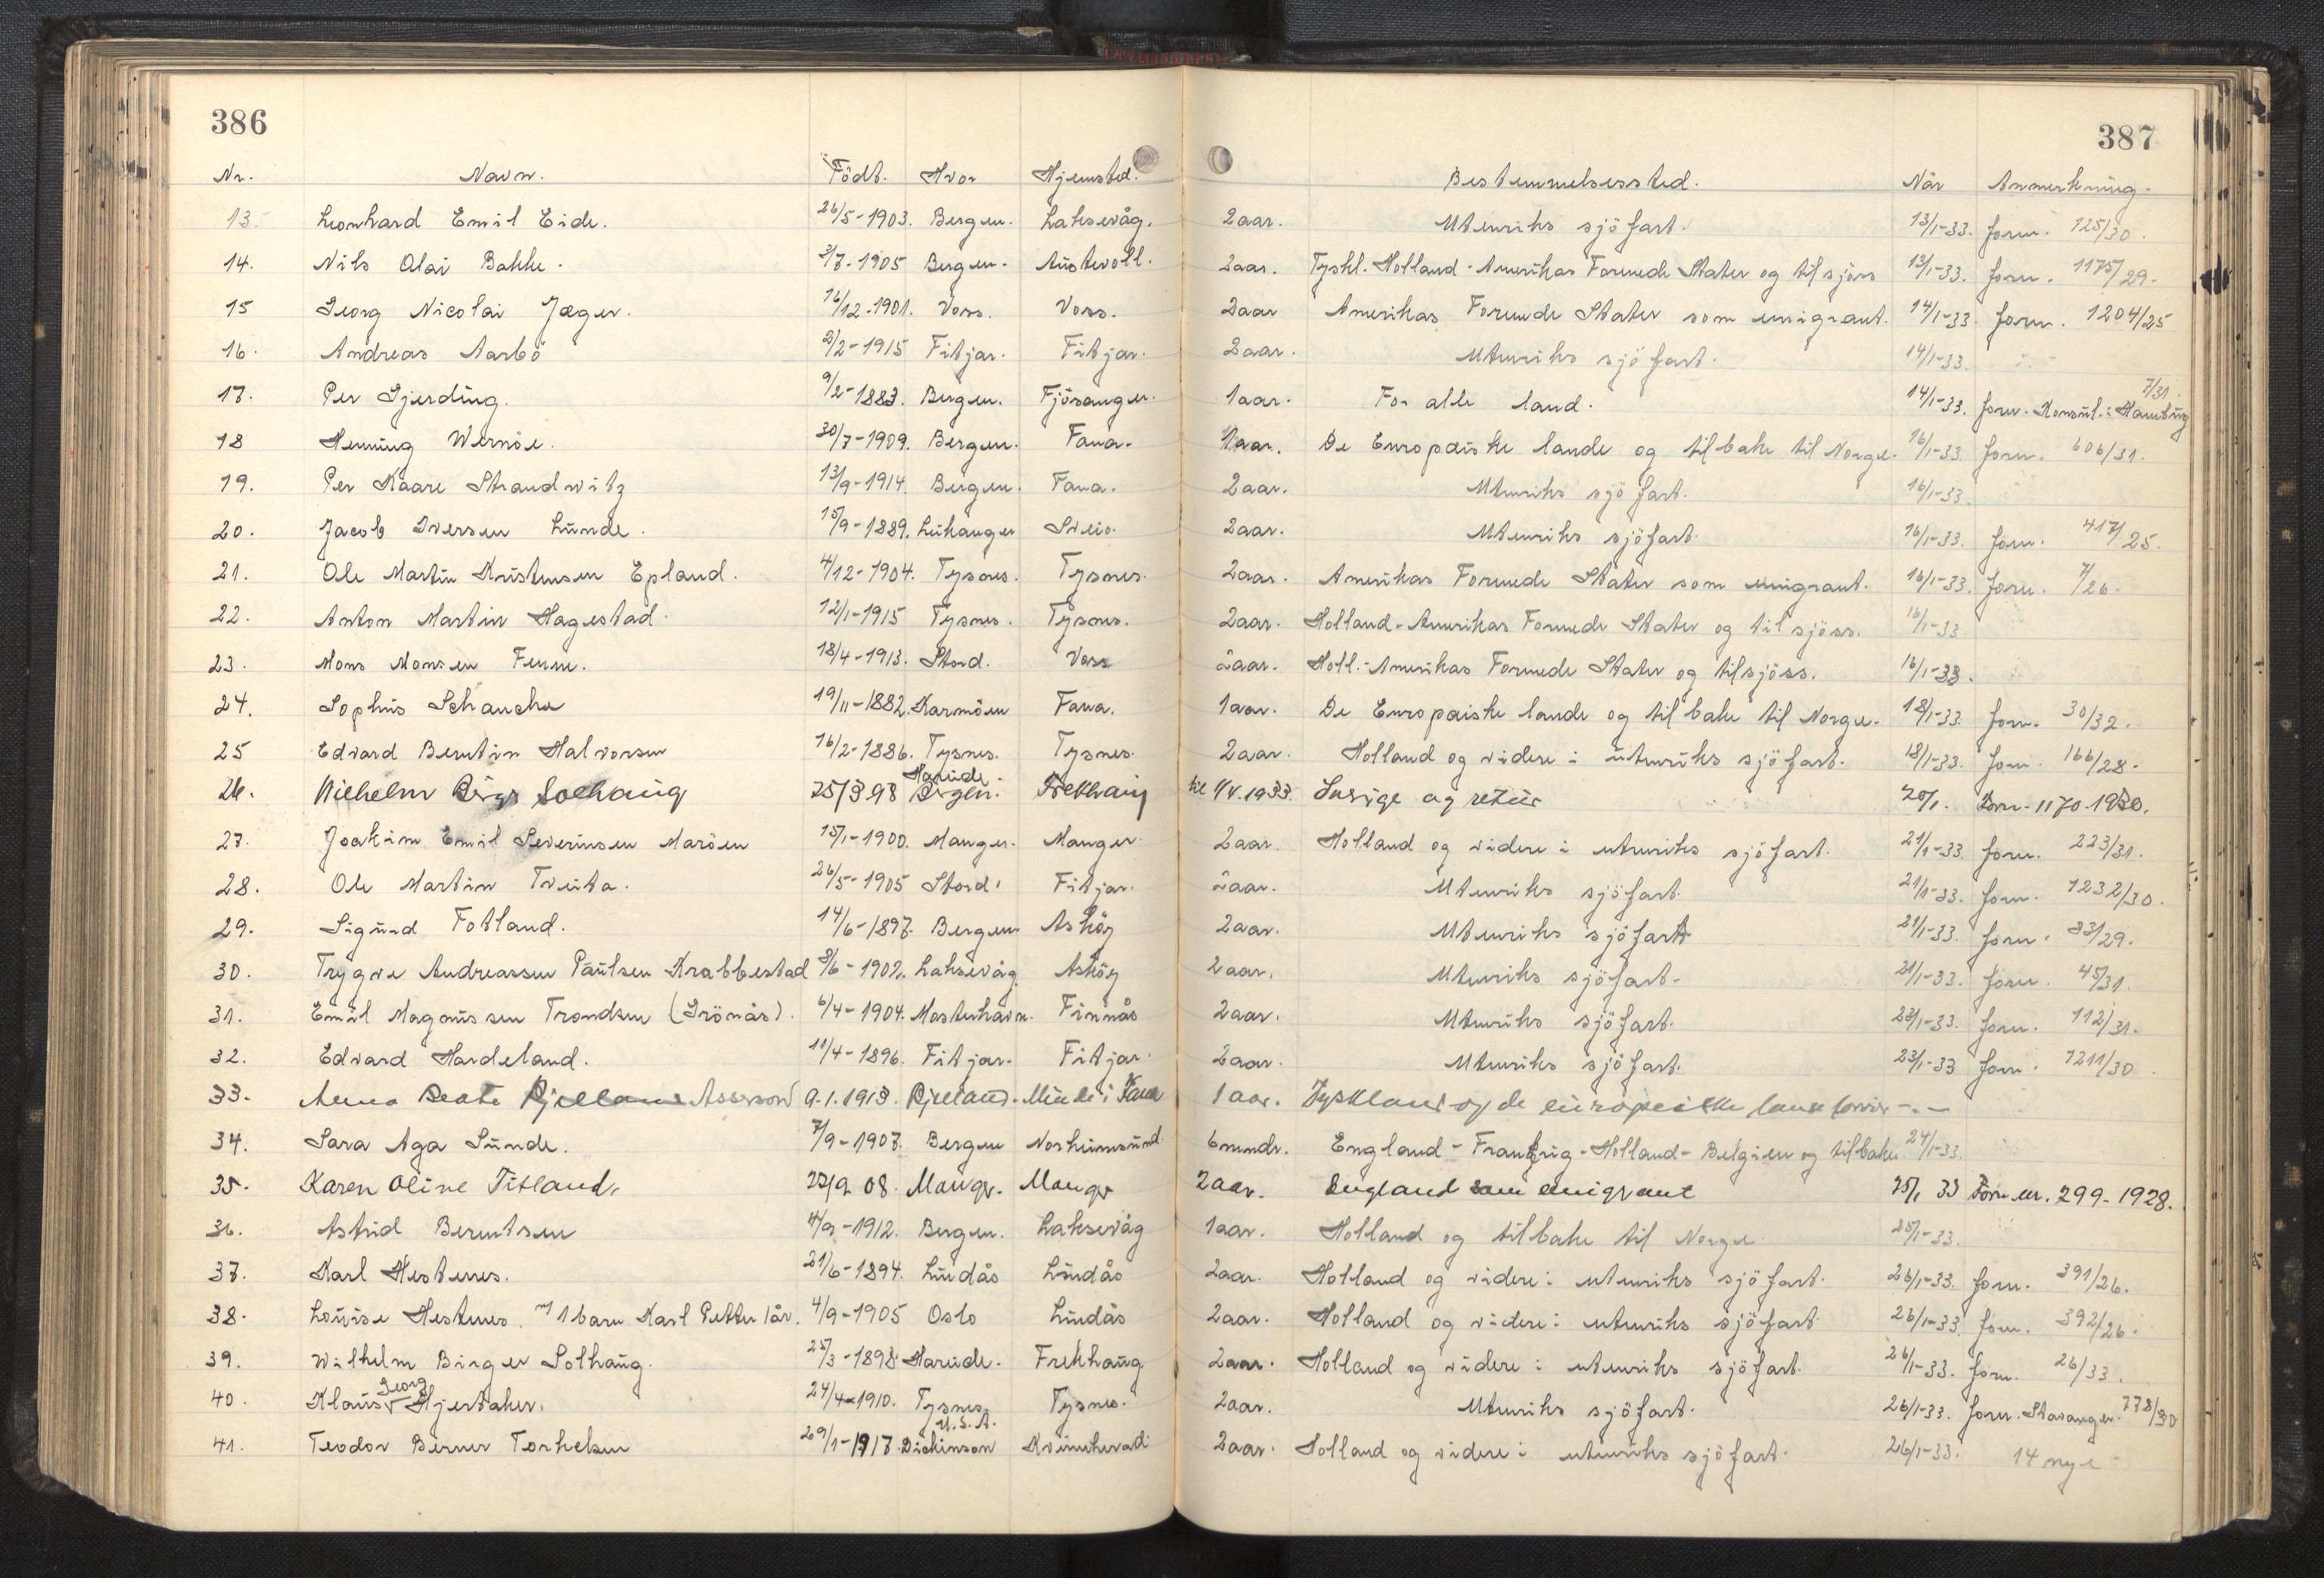 386
387
Nr. Navn. Födt. Hvor Hjemsted. Bestemmelsessted. Når Anmerkning.
13. Leonhard Emil Eide. 26/5-1903. Bergen. Laksevåg. 2 aar. Utenriks sjöfart. 13/1-33. Forn. 125/30.
14. Nils Olai Bakke. 3/7-1905 Bergen. Austevoll. 2 aar. Tyskl. Holland-Amerikas Forenede Stater og til sjöss 13/1-33. Forn. 1175/29.
15 Georg Nicolai Jæger. 16/12-1901. Voss. Voss. 2 aar Amerikas Forenede Stater som emigrant. 14/1-33. Forn. 1204/25
16. Andreas Aarbö 2/2-1915 Fitjar. Fitjar. 2 aar. Utenriks sjöfart. 14/1-33.
17. Per Gjerding. 9/2-1883. Bergen. Fjösanger. 1 aar. For alle land. 14/1-33. Forn. Konsul. i Hamburg 7/31.
18 Henning Wernöe. 30/7-1909. Bergen. Fana. 1 aar. De Europæiske lande og tilbake til Norge. 16/1-33 Forn. 606/31.
19. Per Kaare Strandvitz 13/9-1914. Bergen. Fana. 2 aar. Utenriks sjöfart. 16/1-33.
20. Jacob Iversen Lunde. 15/9-1889. Leikanger Sveio. 2 aar. Utenriks sjöfart. 16/1-33. Forn. 417/25.
21. Ole Martin Kristensen Epland. 4/12-1904. Tysnes. Tysnes. 2 aar. Amerikas Forenede Stater som emigrant. 16/1-33. Forn. 7/26.
22. Anton Martin Hagestad. 12/1-1915 Tysnes. Tysnes. 2 aar. Holland-Amerikas Forenede Stater og til sjöss. 16/1-33
23. Mons Monsen Fenne. 18/4-1913. Stord. Voss 2 aar. Holl.-Amerikas Forenede Stater og tilsjöss. 16/1-33.
24. Sophus Schanche 19/11-1882. Karmöen Fana. 1 aar. De Europæiske lande og tilbake til Norge. 18/1-33 Forn. 30/32.
25 Edvard Berntin Halvorsen 16/2-1886. Tysnes. Tysnes. 2 aar. Holland og videre i utenriks sjöfart. 18/1-33. Forn. 166/28.
26. Wilhelm Birger Solhaug 25/3 98 Bergen. Hareide. Frekhaug til 1/V.1933. Sverige og retur 20/1. Forn. 1170-1930.
27. Joakim Emil Severinsen Maröen 15/1-1900. Manger. Manger. 2 aar. Holland og videre i utenriks sjöfart. 21/1-33. Forn. 223/31.
28. Ole Martin Tveita. 26/5-1905 Stord. Fitjar. 2 aar. Utenriks sjöfart. 21/1-33. Forn. 1232/30.
29. Sigurd Fotland. 14/6-1897. Bergen Askøy 2 aar. Utenriks sjöfart 21/1-33. Forn. 33/29.
30. Trygve Andreassen Paulsen Krabbestad 8/6-1902. Laksevåg. Askøy 2 aar. Utenriks sjöfart. 21/1-33. Forn. 45/31.
31. Emil Magnussen Trondsen (Grönås). 6/4-1904. Mosterhavn. Finnås 2 aar. Utenriks sjöfart. 23/1-33. Forn. 112/31.
32. Edvard Hardeland. 11/4-1896. Fitjar. Fitjar. 2 aar. Utenriks sjöfart. 23/1-33 Forn. 1211/30.
33. Anna Beate Bjelland Asserson 9.1.1913. Bjelland. Minde i Fana 1 aar. Tyskland og de europeiske land forøvr.
34. Sara Aga Sunde. 7/9-1907. Bergen Norheimsund 6 mndr. England-Frankrig-Holland-Belgien og tilbake 24/1-33.
35. Karen Oline Titland. 22/9 08. Manger. Manger 2 aar. England som emigrant 25/1 33 Forn nr. 299-1928.
36. Astrid Berntsen 4/9-1912. Bergen. Laksevåg 1 aar. Holland og tilbake til Norge 25/1-33.
37. Karl Hestenes. 21/6-1894. Lindås Lindås 2 aar. Holland og videre i utenriks sjöfart. 26/1-33. Forn. 391/26.
38. Louise Hestenes. m/ 1 barn Karl Petter 1 år. 4/9-1905 Oslo Lindås 2 aar. Holland og videre i utenriks sjöfart 26/1-33. Forn. 392/26.
39. Wilhelm Birger Solhaug. 25/3-1898 Hareide. Frekhaug 2 aar. Holland og videre i utenriks sjöfart. 26/1-33. Forn. 26/33.
40. Klaus Georg Hjertaker. 24/4-1910. Tysnes. Tysnes. 2 aar. Utenriks sjöfart. 26/1-33. Forn. Stavanger. 778/30
41. Teodor Berner Torkelsen 29/1-1917. Dickinson U.S.A. Kvinnherad 2 aar. Holland og videre i utenriks sjöfart. 26/1-33. 14 nye